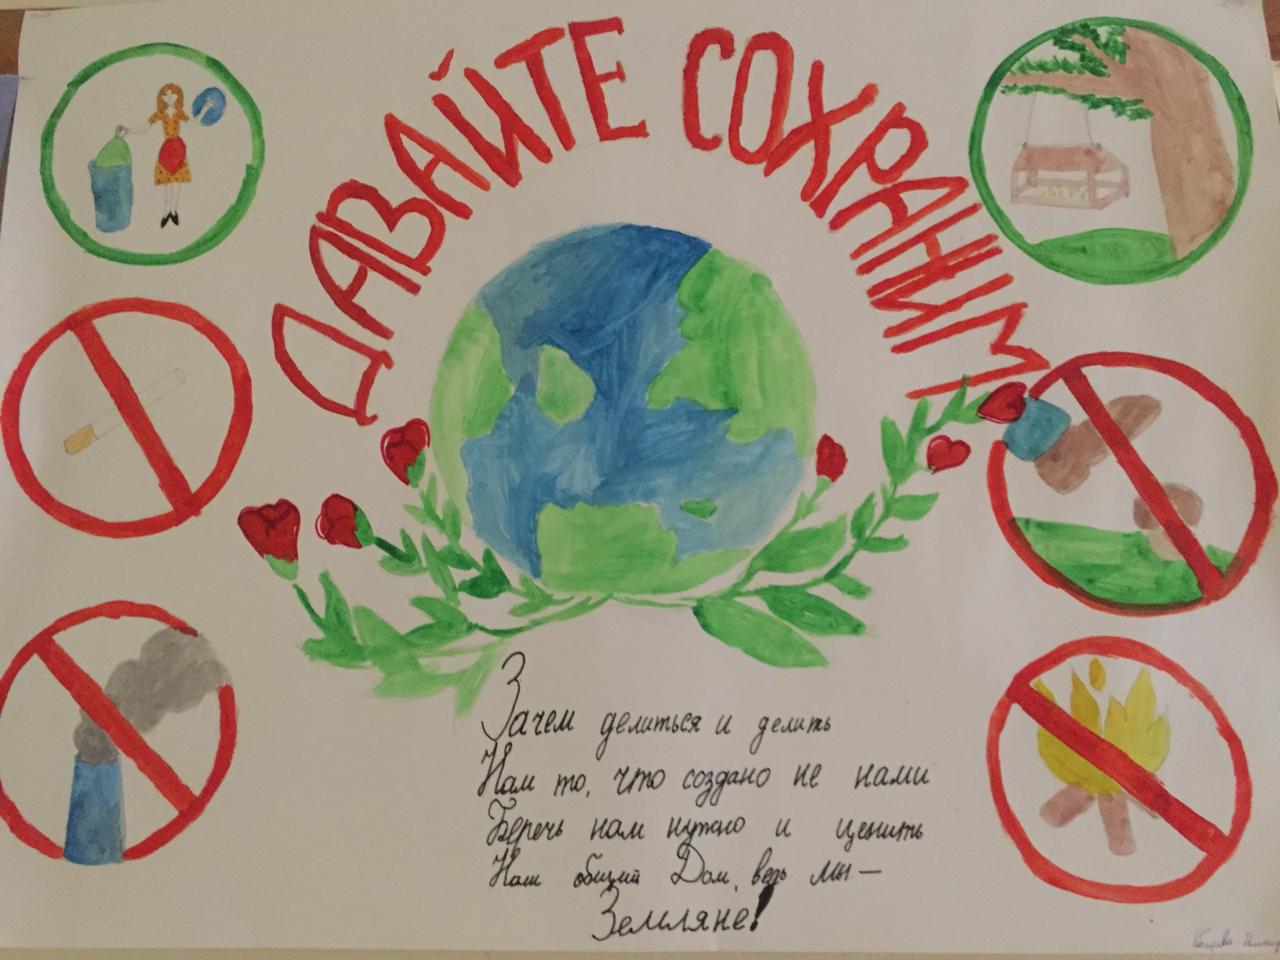 ДАВАЙТЕ СОХРАНИМ
Зачем делиться и делить
Нам то, что создано не нами
Беречь нам нужно и ценить
Наш общий Дом, ведь мы —
Земляне!